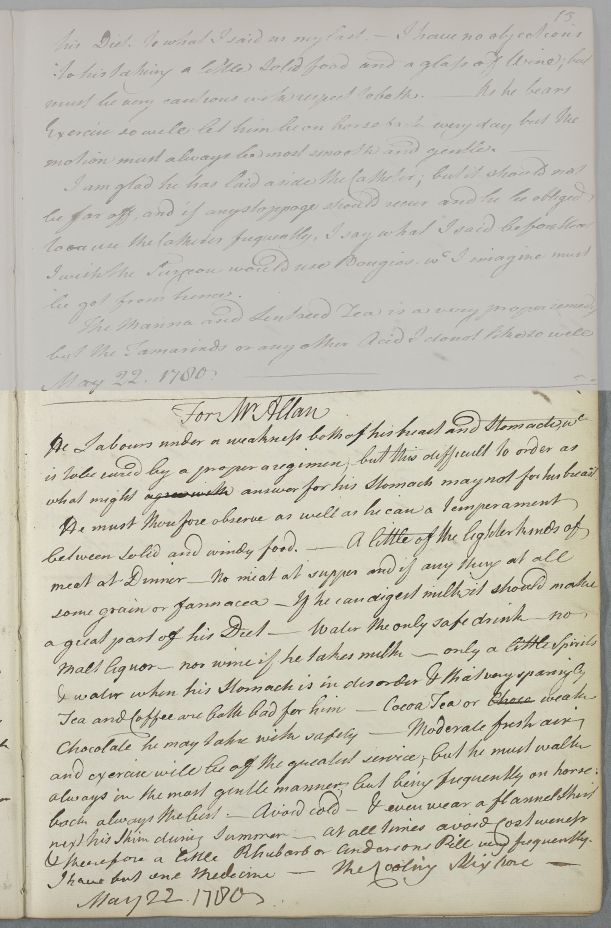 15
his Diet. to what I said in my last. — I have no objections
to his taking a little solid food and a glass of Wine, but
must be very cautious with respect to both. — As he bears
Exercise so well let him be on horseback every day but the
motion must always be most smooth and gentle. —
I am glad he has laid aside the Catheter; but it should not
be far off, and if any stoppage should occur and he be obliged
to use the Catheter frequently, I say what I said before that
I wish the Surgeon would use Bougies. wc. I imagine must
be got from hence.
The Manna and Lintseed Tea is a very proper remedy
but the Tamarinds or any other Acid I do not like so well
May 22. 1780.
For Mr. Allan
He Labours under a weakness both of his breast and Stomach, wc.
is to be cured by a proper regimen, but this difficult to order as
what might agree with answer for his Stomach may not for his breast
He must therefore observe as well as he can a temperament
between solid and windy food. — A little of the lighter kinds of
meat at Dinner — No meat at supper and if any thing at all
some grain or farinacea — If he can digest milk it should make
a great part of his Diet — Water the only safe drink — no
Malt liquor — nor wine if he takes milk — only a little Spirits
& water when his Stomach is in disorder & that very sparingly
Tea and Coffee are both bad for him — Cocoa Tea or weak
Chocolate he may take with safety — Moderate fresh air
and exercise will be of the greatest service, but he must walk
always in the most gentle manner, but being frequently on horse:
back always the best — Avoid cold — & even wear a flannel Shirt
next his Skin during Summer — at all times avoid Costiveness
& therefore a little Rhubarb or Andersons Pill very frequently.
I have but one Medicine — The Cooling Mixture —
May 22. 1780.